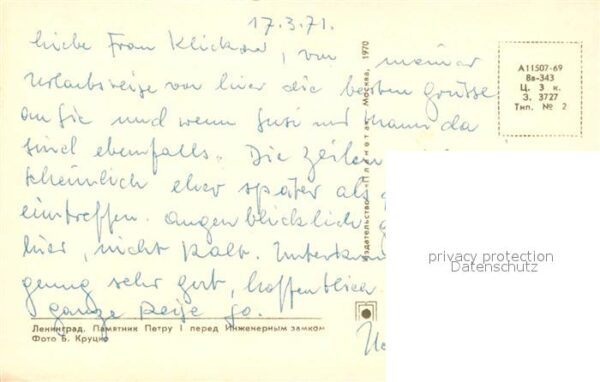 17.3.71.
Liebe Frau Klickow, von meiner
Urlaubsreise von hier die besten Grüsse
an Sie und wenn Susi und Mami da
sind ebenfalls. Die Zeilen
scheinlich eher später als
eintreffen. Augenblicklich
hier, nicht kalt. Unterkun
gung sehr gut, hoffentlich
ganze Reise so.
Издательство «Планета». Москва, 1970
А11507-69
8в-343
Ц. 3 к.
З. 3727
Тип. № 2
privacy protection
Datenschutz
Ленинград. Памятник Петру I перед Инженерным замком
Фото Б. Круцко